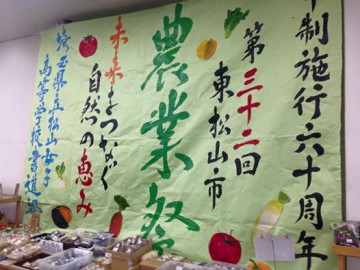 市制施行六十周年
第三十二回
東松山市
農業祭
未来につなぐ
自然の恵み
埼玉県立松山女子
高等学校書道部